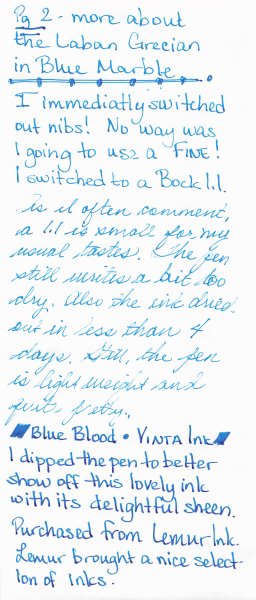 Pg 2 - more about
the Laban Grecian
in Blue Marble.
I immediatly switched
out nibs! No way was
I going to use a FINE!
I switched to a Bock 1.1.
As I often comment,
a 1.1 is small for my
usual tastes. The pen
still writes a bit too
dry. Also the ink dried
out in less than 4
days. Still, the pen
is light weight and
quite pretty.
Blue Blood • VINTA INK
I dipped the pen to better
show off this lovely ink
with its delightful sheen.
Purchased from Lemur Ink.
Lemur brought a nice select-
ion of inks.